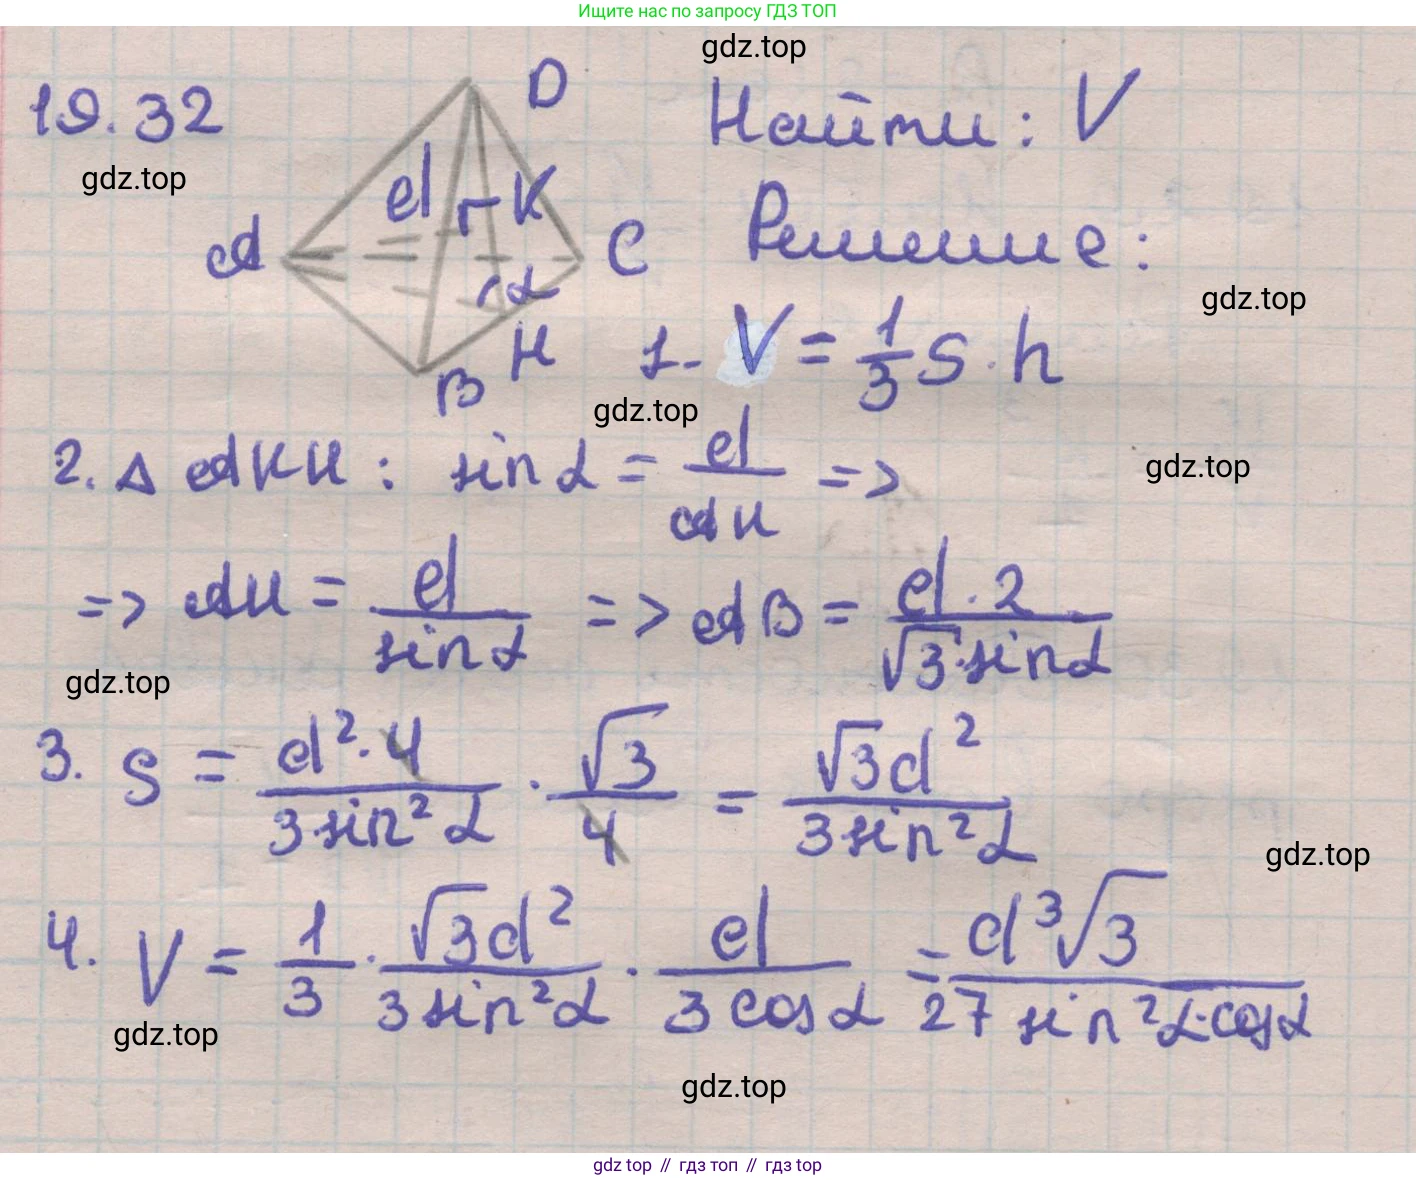 Ищите нас по запросу ГДЗ ТОП
gdz.top
19.32
D
Найти: V
gdz.top
d
K
A
C
Решение:
α
gdz.top
H
B
1. V = 1/3 S · h
gdz.top
2. Δ AKH : sin α = d/AH =>
gdz.top
=> AH = d/sin α => AB = d · 2/√3 · sin α
gdz.top
3. S = d² · 4/3 sin² α · √3/4 = √3 d²/3 sin² α
gdz.top
4. V = 1/3 · √3 d²/3 sin² α · d/3 cos α = d³√3/27 sin² α · cos α
gdz.top
gdz.top
gdz top // гдз топ // гдз top